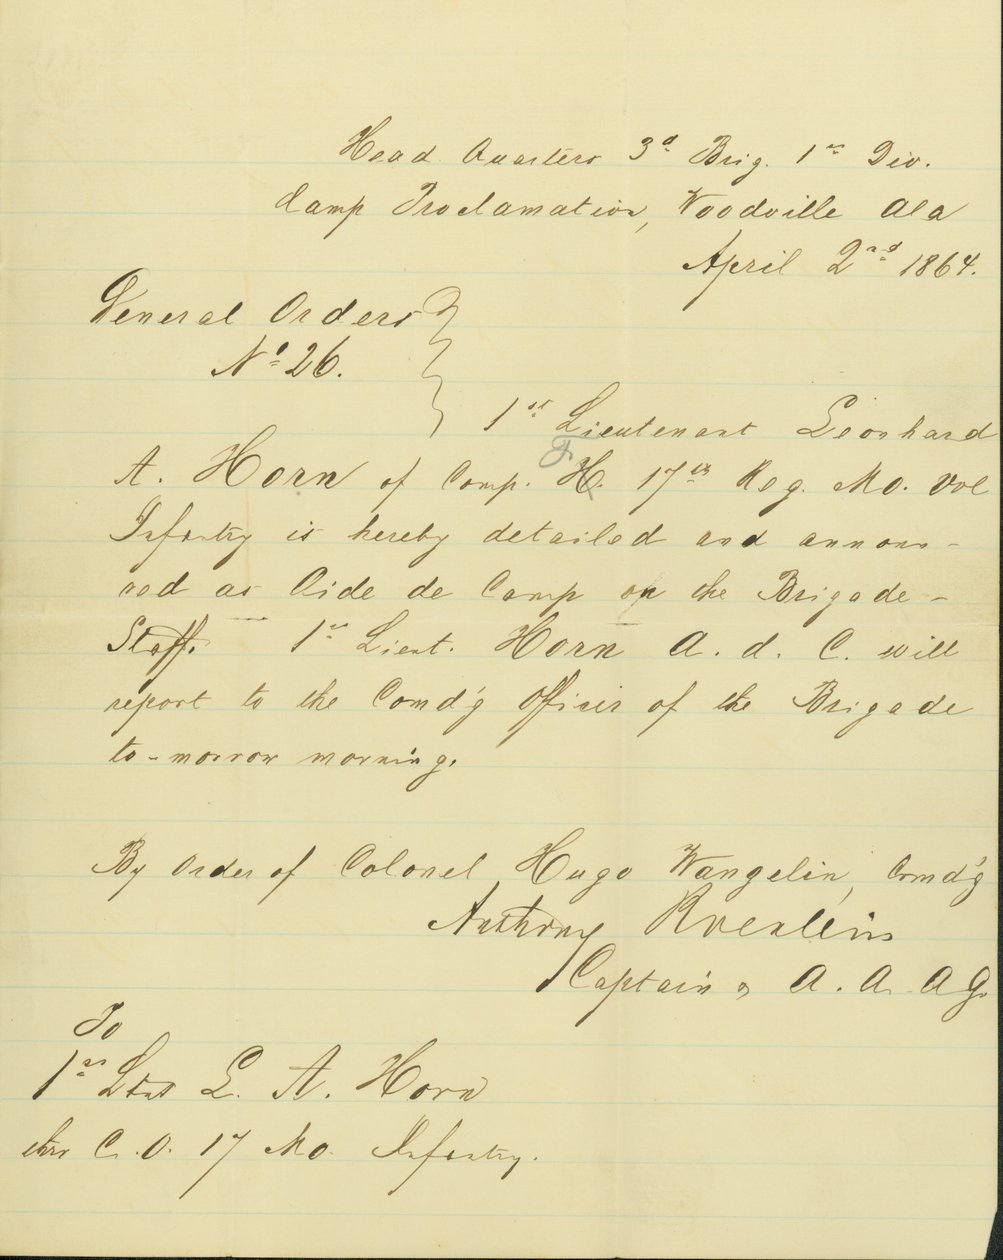 Head Quarters 3d Brig. 1st Div.
Camp Proclamation, Woodville Ala
April 2nd 1864.
General Orders
No 26.
1st Lieutenant Leonhard
A. Horn of Comp. F. H. 17th Reg. Mo. Vol
Infantry is hereby detailed and announ-
ced as Aide de Camp on the Brigade-
Staff. 1st Lieut. Horn A. d. C. will
report to the Comd'g Officer of the Brigade
to-morrow morning.
By Order of Colonel Hugo Wangelin, Comd'g
Anthony
Captain & A. A. A G.
To
1st Lieut L. A. Horn
thro C. O. 17 Mo. Infantry.